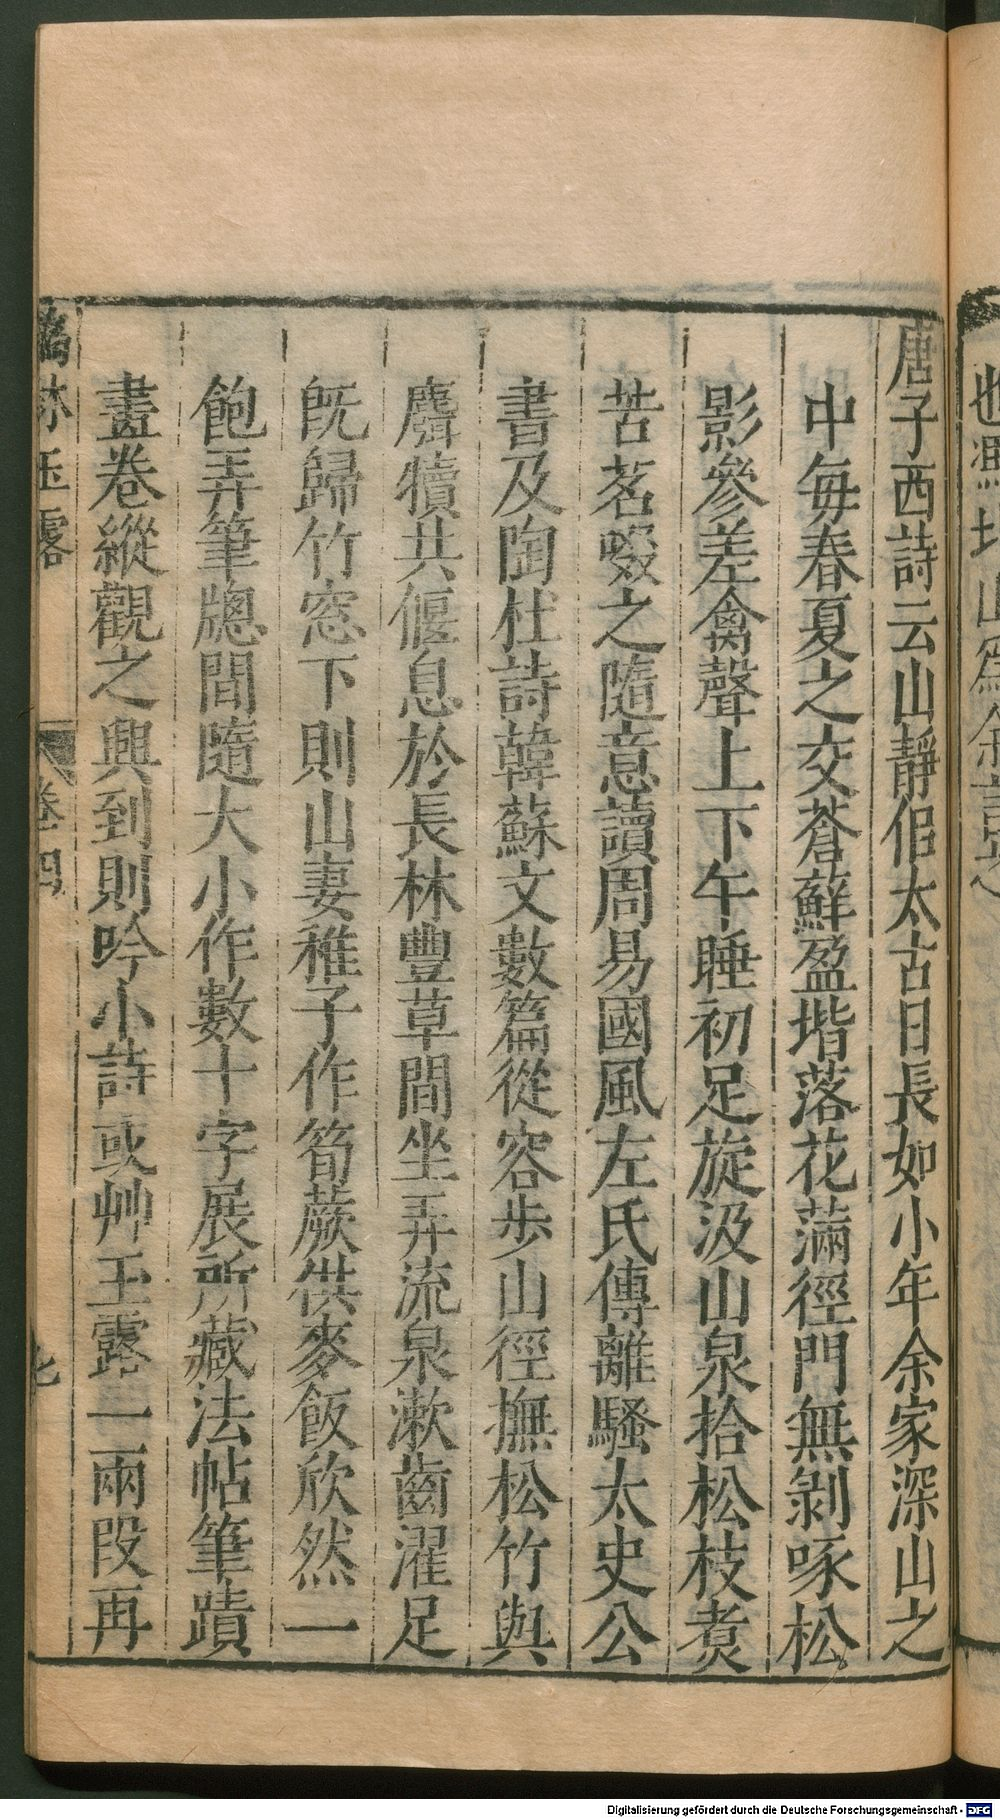 唐子西詩云山靜佀太古日長如小年余家深山之
中每春夏之交蒼蘚盈堦落花滿徑門無剝啄松
影參差禽聲上下午睡初足旋汲山泉拾松枝煑
苦茗啜之隨意讀周易國風左氏傳離騷太史公
書及陶杜詩韓蘇文數篇從容步山徑撫松竹與
麛犢共偃息於長林豐草間坐弄流泉漱齒濯足
旣歸竹窓下則山妻稚子作筍蕨供麥飯欣然一
飽弄筆牕間隨大小作數十字展所藏法帖筆蹟
畫卷縱觀之興到則吟小詩或艸玉露一兩段再
林玉露
卷四
七
Digitalisierung gefördert durch die Deutsche Forschungsgemeinschaft - DFG